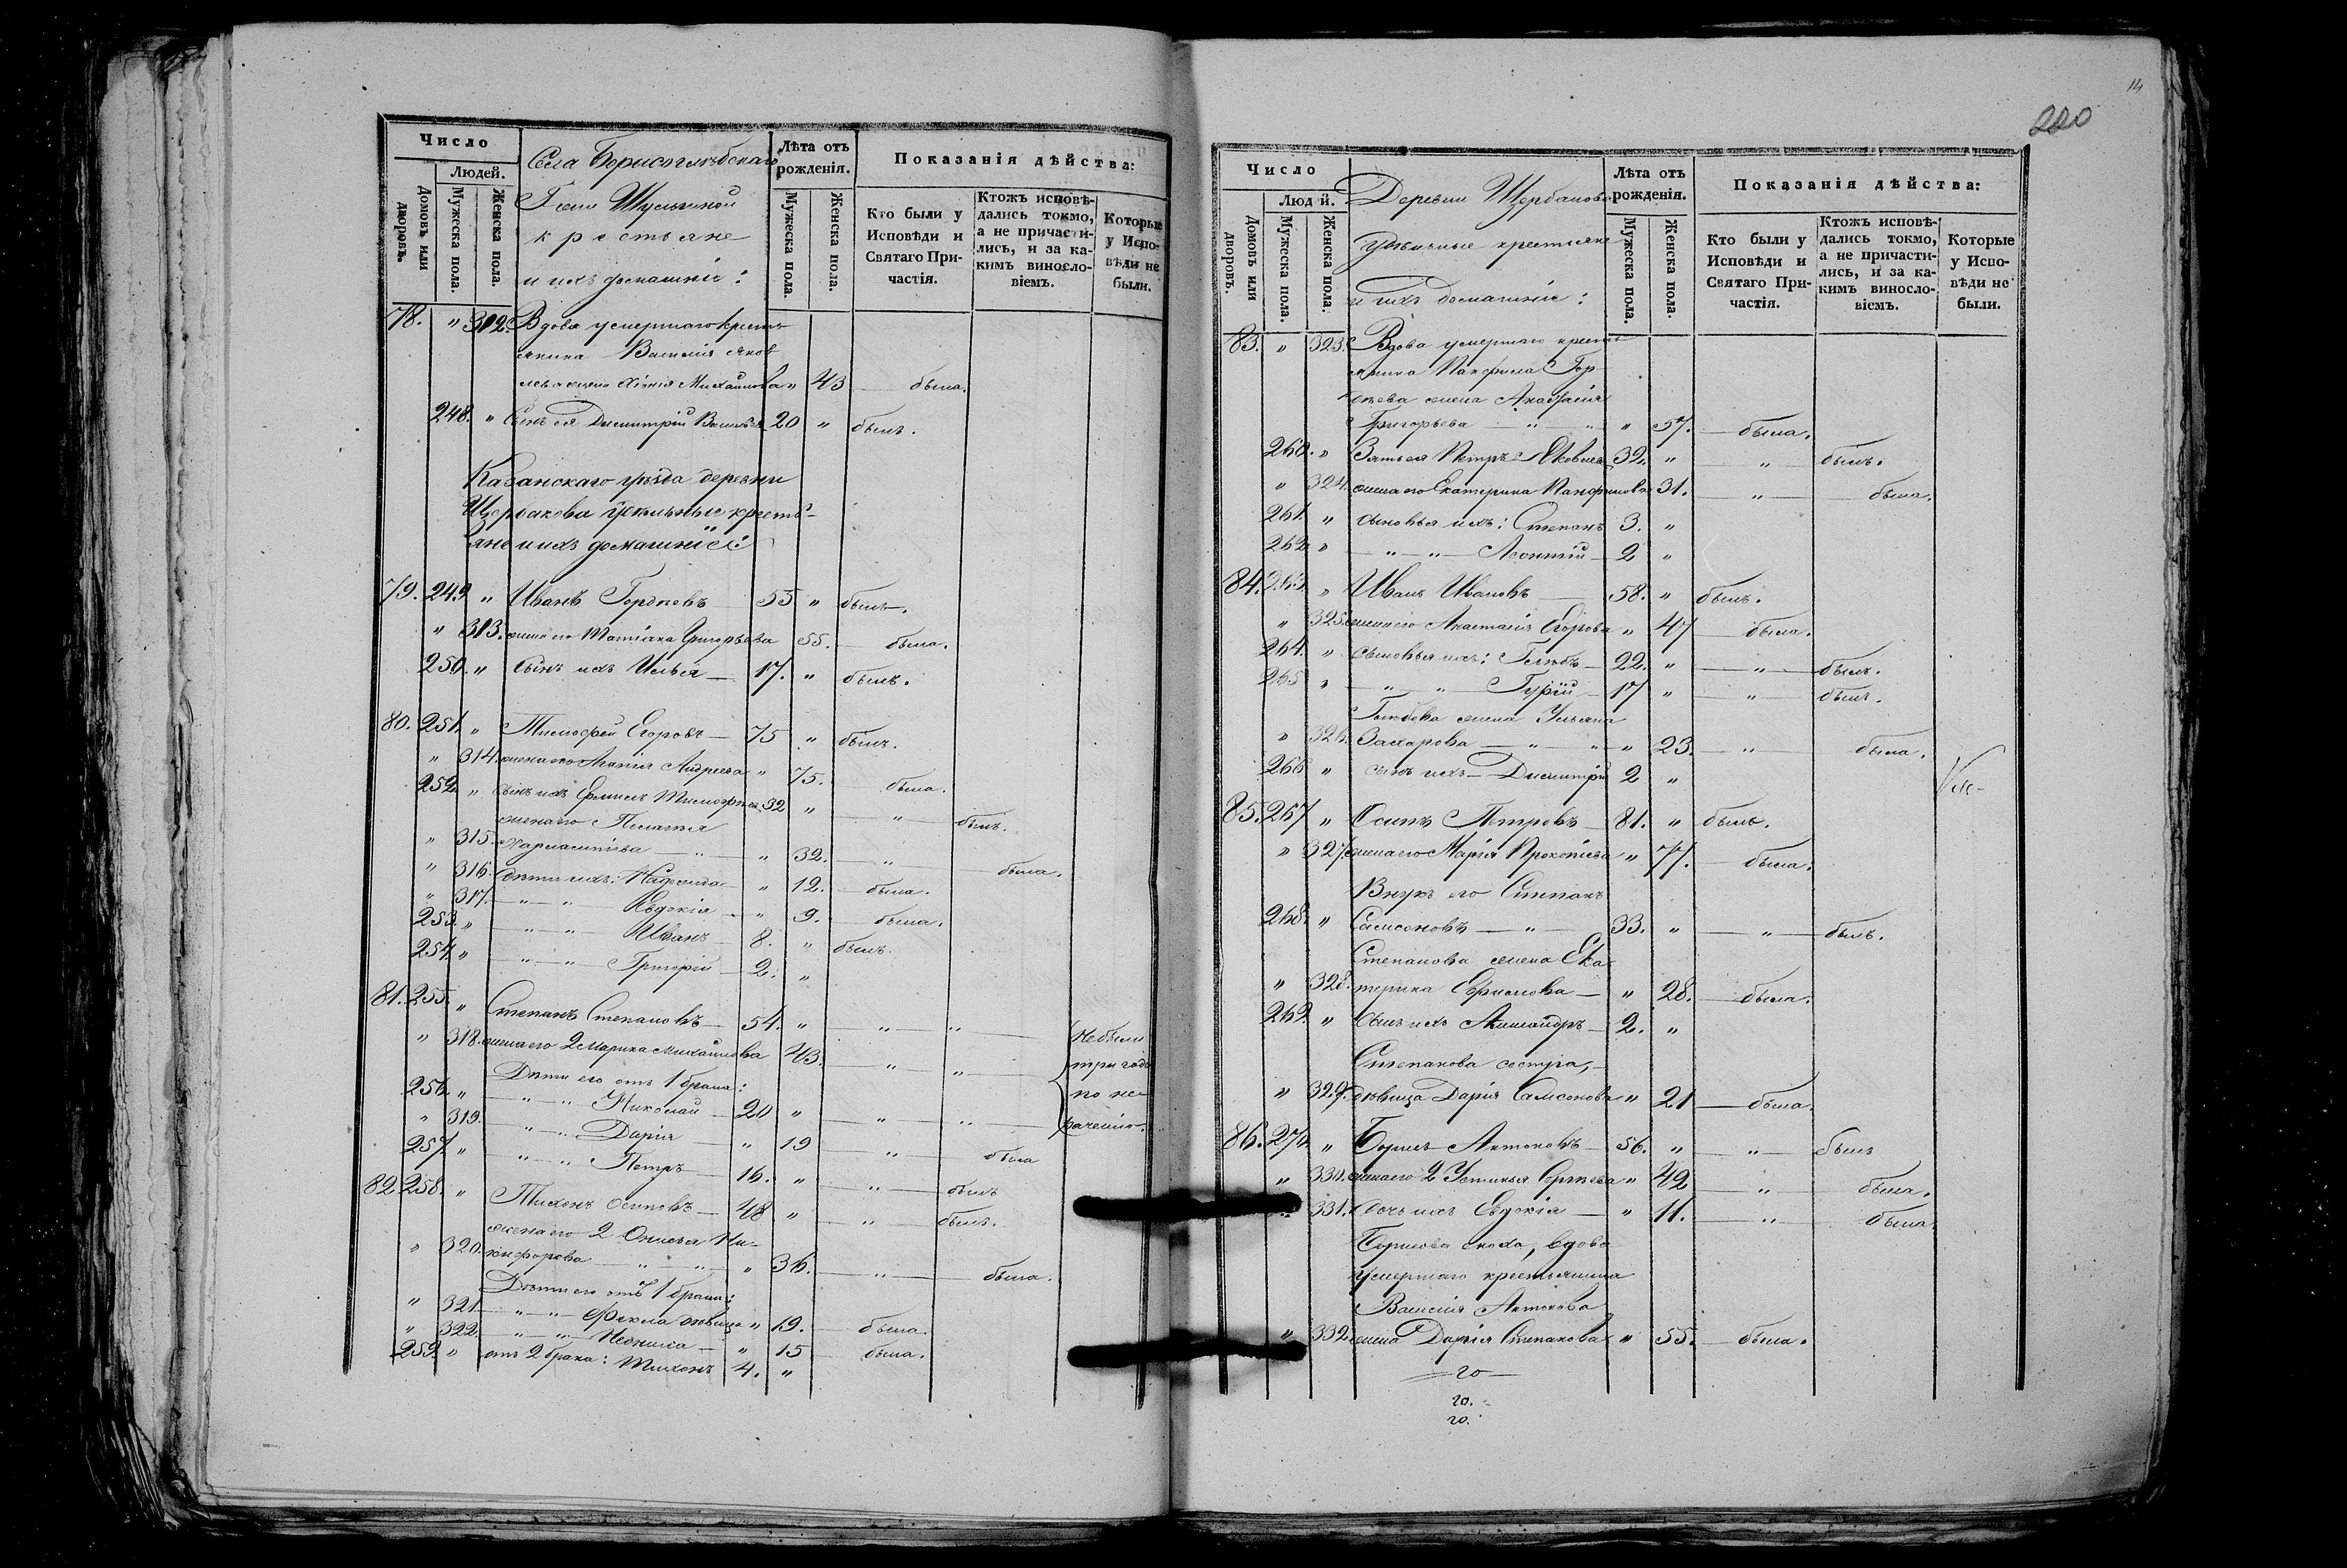 Число
Людей.
Домовъ или дворовъ.
Мужеска пола.
Женска пола.
Села Борисоглѣбскаго
Г-жи Шулыгиной
крестьяне
и ихъ домашніе:
Лѣта отъ рожденія.
Мужеска пола.
Женска пола.
Показанія дѣйства:
Кто были у Исповѣди и Святаго Причастія.
Ктожъ исповѣдались токмо, а не причастились, и за какимъ винословіемъ.
Которые у Исповѣди не были.
78. " 312. Вдова умершаго кресть-
янина Василія Яков
лева жена Михайлова " 43 была.
248. " Сынъ ея Димитрій Васильевъ 20 " былъ.
Казанскаго уѣзда деревни
Щербакова удѣльные кресть-
яне и ихъ домашніе:
79. 249 " Иванъ Гордѣевъ 55 " былъ.
" 313. жена его Татіана Григорьева 55. была.
250. " сынъ ихъ Илья 17. " былъ.
80. 251. " Тимофей Егоровъ 75 " былъ.
" 314. жена его Агапія Андреева " 75. была.
252. " сынъ ихъ Тимофѣевъ 32 " " былъ.
жена его Пелагея
" 315. Харлампіева " " 32. " была.
" 316. дѣти ихъ: Надежда " 12. была.
" 317. " " Евдокія " 9. была.
253. " " " Иванъ 8. " былъ.
254. " " " Григорій 2. "
81. 255. " Степанъ Степановъ 54. " " " Небыли
" 318. жена его 2 Марина Михайлова 43. " " три года
Дѣти его отъ 1 брака:
256. " " " Николай 20 " " " по не-
" 319. " " Дарія " 19 " была раченію.
257. " " " Петръ 16. " " былъ
82. 258. " Тихонъ Осиповъ 48 " " былъ.
жена его 2 Ни-
" 320. кифорова " " " 36. " была.
Дѣти его отъ 1 брака:
" 321. " " Фекла дѣвица " 19. была.
" 322. " " Неонила " 15 была.
259. " отъ 2 брака: Тихонъ 4. "
14
220
Число
Людей.
Домовъ или дворовъ.
Мужеска пола.
Женска пола.
Деревни Щербакова
удѣльные крестьяне
и ихъ домашніе:
Лѣта отъ рожденія.
Мужеска пола.
Женска пола.
Показанія дѣйства:
Кто были у Исповѣди и Святаго Причастія.
Ктожъ исповѣдались токмо, а не причастились, и за какимъ винословіемъ.
Которые у Исповѣди не были.
83. " 323. Вдова умершаго кресть
янина Панфила Гор-
дѣева жена Анастасія
Григорьева " " " 57. была.
260. " Зять ея Петръ Яковлевъ 32. " " былъ.
" 324. жена его Екатерина Панфилова 31. " была.
261. " сыновья ихъ: Степанъ 3. "
262. " " " Леонтій 2 "
84. 263. " Иванъ Ивановъ 58. " былъ.
" 325. жена его Анастасія Егорова " 47 была.
264. " сыновья ихъ: Глѣбъ 22. " " былъ.
265 " " " Гурій 17 " " былъ.
Глѣбова жена Ульяна
" 326. Захарова " " " 23. " была.
266 " сынъ ихъ Димитрій 2 "
85. 267 " Осипъ Петровъ 81. " былъ.
" 327. жена его Марія Прокопіева " 77. была.
Внукъ его Степанъ
268. " Самсоновъ " 33. " " былъ.
Степанова жена Ека-
" 328. терина Ефимова " 28. была.
269. " сынъ ихъ Александръ 2. "
Степанова сестра,
" 329. дѣвица Дарія Самсонова " 21 была.
86. 270. " Борисъ Антоновъ 56. " " былъ
" 330. жена его 2 Устинья Сергѣева " 42 " была.
" 331. дочь ихъ Евдокія " 11. " была.
Борисова сноха, вдова
умершаго крестьянина
Василія Антонова
" 332 жена Дарія Степанова " 55. была.
20
20.
20.